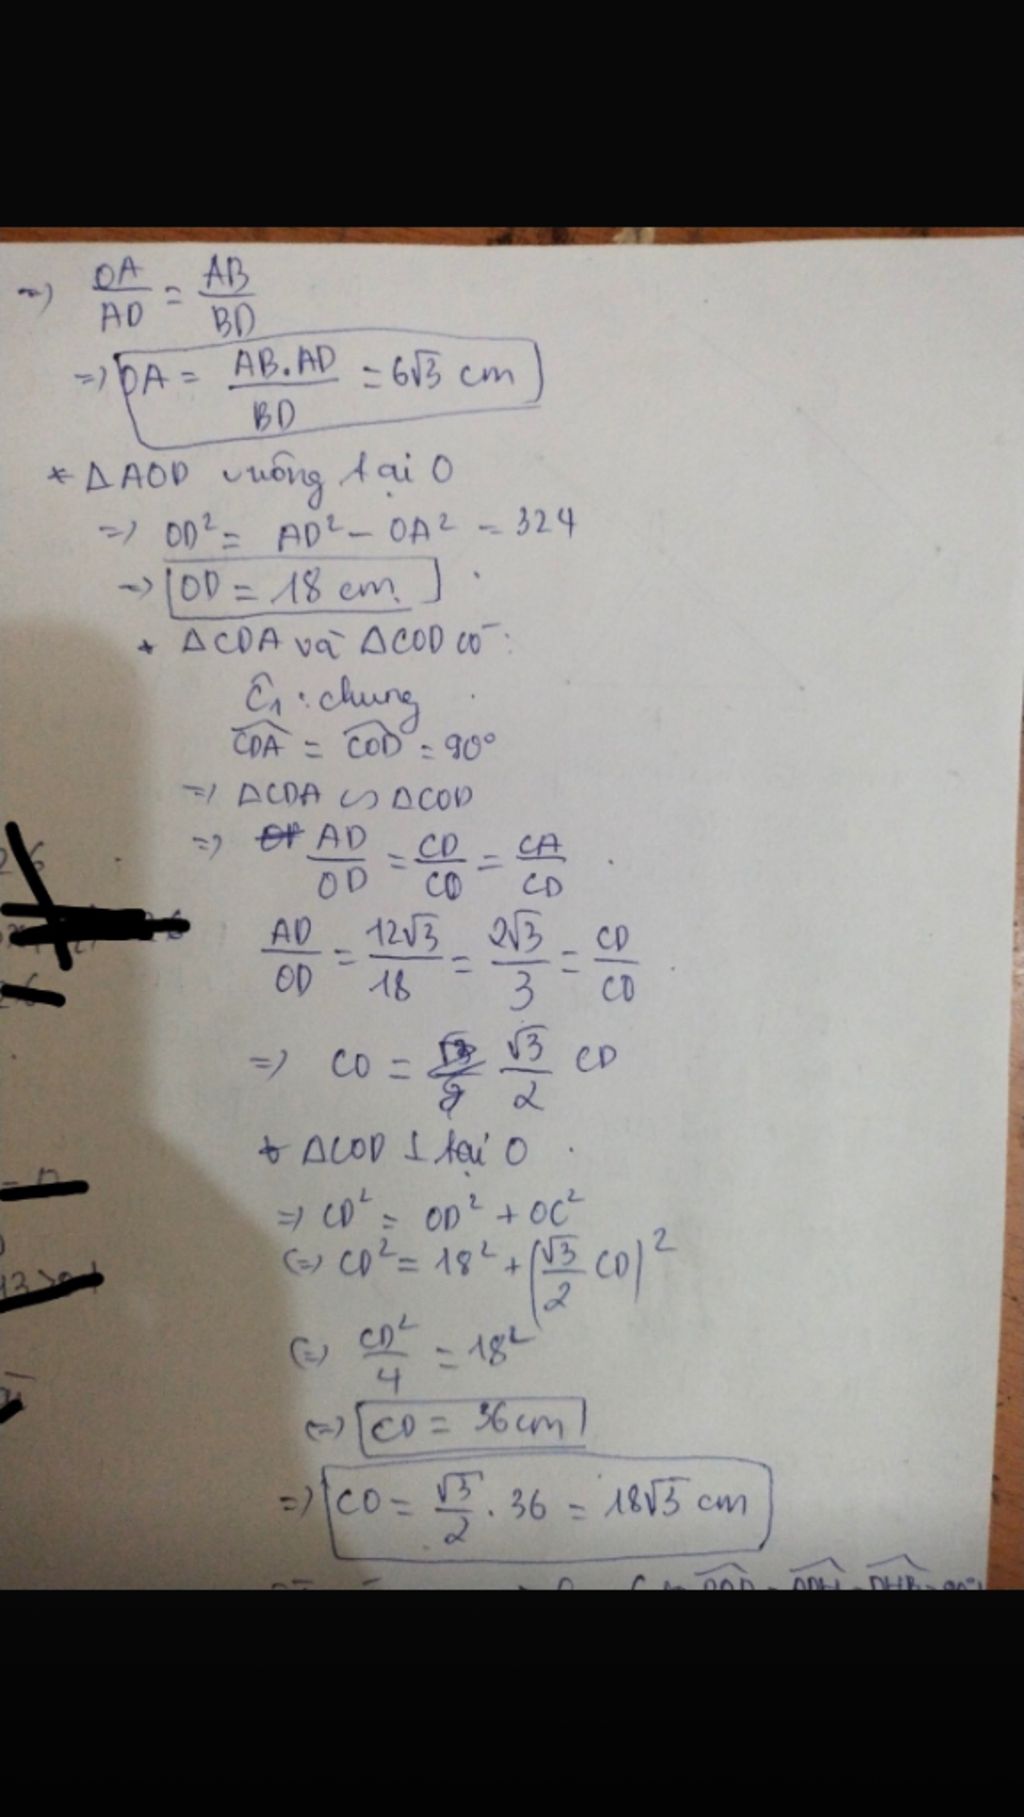 => OA/AD = AB/BD
=> OA = AB.AD/BD = 6√3 cm
* ΔAOD vuông tại O
=> OD² = AD² - OA² = 324
=> OD = 18 cm.
* ΔCDA và ΔCOD có:
Ĉ₁ : chung
CDA = COD = 90°
=> ΔCDA ∽ ΔCOD
=> AD/OD = CD/CO = CA/CD
AD/OD = 12√3/18 = 2√3/3 = CD/CO
=> CO = √3/2 CD
* ΔCOD ⊥ tại O
=> CD² = OD² + OC²
(=) CD² = 18² + (√3/2 CD)²
(=) CD²/4 = 18²
(=) CD = 36cm
=> CO = √3/2 . 36 = 18√3 cm